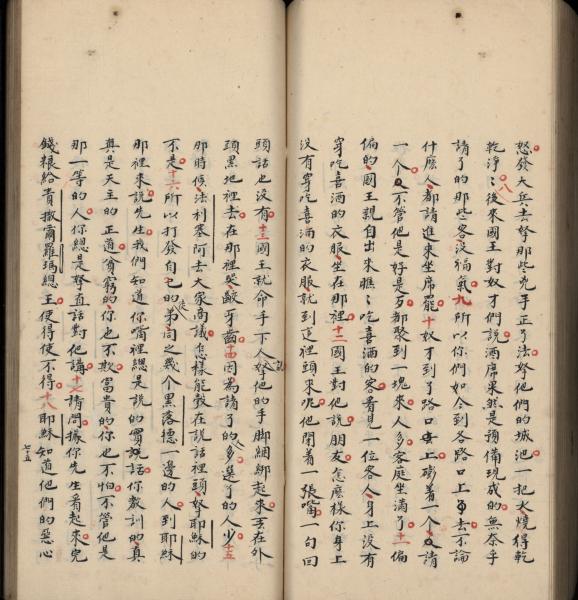 怒發大兵去拏那些兇手正了法拏他們的城池一把火燒得乾
乾淨〻八後來國王對奴才們說酒席果然是預備現成的無奈乎
請了的那些客没福氣九所以你們如今到各路口上去不論
什庅人都請進來坐席罷十奴才到了路口上碰着一个請
一个不管他是好是歹都聚到一塊來人多家庭坐滿了十一偏
偏的國王親自出來瞧〻吃喜酒的客看見一位客人身上没有
穿吃喜酒的衣服坐在那裡十二國王對他說朋友怎庅樣你身上
没有穿吃喜酒的衣服就到這裡頭來呢他閉着一張嘴一句回
頭話也没有十三國王就命手下人拏他的手脚綑綁起來丢在外
頭黑地裡去在那裡哭齩牙齒十四因為請了的多選了的人少十五
那時候法利塞阿去大家商議怎樣能彀在說話裡頭拏耶穌的
不是十六所以打發自己的弟同之幾个黑落德一邊的人到耶穌
徒
那裡來說先生我們知道你嘴裡總是說的實話你教訓的真
真是天主的正道貧窮的你也不欺富貴的你也不怕不管他是
那一等的人你總是拏直話對他講十七請問據你先生看起來完
錢粮給責撒爾羅瑪總王使得使不得十八耶穌知道他們的惡心
七十五